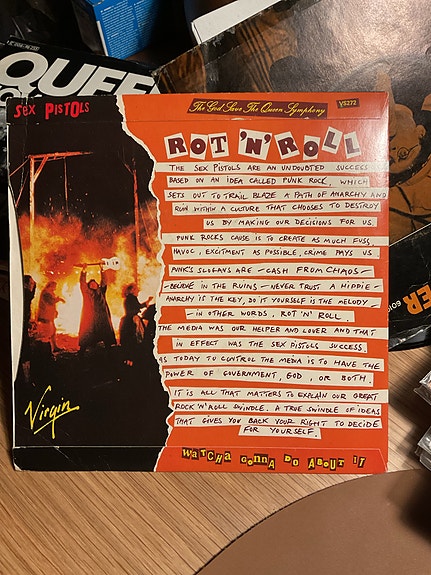 QUEE
SEX PISTOLS
The God Save The Queen Symphony
VS272
ROT 'N' ROLL
THE SEX PISTOLS ARE AN UNDOUBTED SUCCESS
BASED ON AN IDEA CALLED PUNK ROCK, WHICH
SETS OUT TO TRAIL BLAZE A PATH OF ANARCHY AND
RUIN WITHIN A CULTURE THAT CHOOSES TO DESTROY
US BY MAKING OUR DECISIONS FOR US.
PUNK ROCKS CAUSE IS TO CREATE AS MUCH FUSS,
HAVOC, EXCITMENT AS POSSIBLE, CRIME PAYS US
PUNK'S SLOGANS ARE - CASH FROM CHAOS -
- BELIEVE IN THE RUINS - NEVER TRUST A HIPPIE -
ANARCHY IS THE KEY, DO IT YOURSELF IS THE MELODY -
- IN OTHER WORDS, ROT 'N' ROLL.
THE MEDIA WAS OUR HELPER AND LOVER AND THAT
IN EFFECT WAS THE SEX PISTOLS SUCCESS.
AS TODAY TO CONTROL THE MEDIA IS TO HAVE THE
POWER OF GOVERNMENT, GOD, OR BOTH.
IT IS ALL THAT MATTERS TO EXPLAIN OUR GREAT
ROCK 'N' ROLL SWINDLE. A TRUE SWINDLE OF IDEAS
THAT GIVES YOU BACK YOUR RIGHT TO DECIDE
FOR YOURSELF.
Virgin
WATCHA GONNA DO ABOUT IT
ER